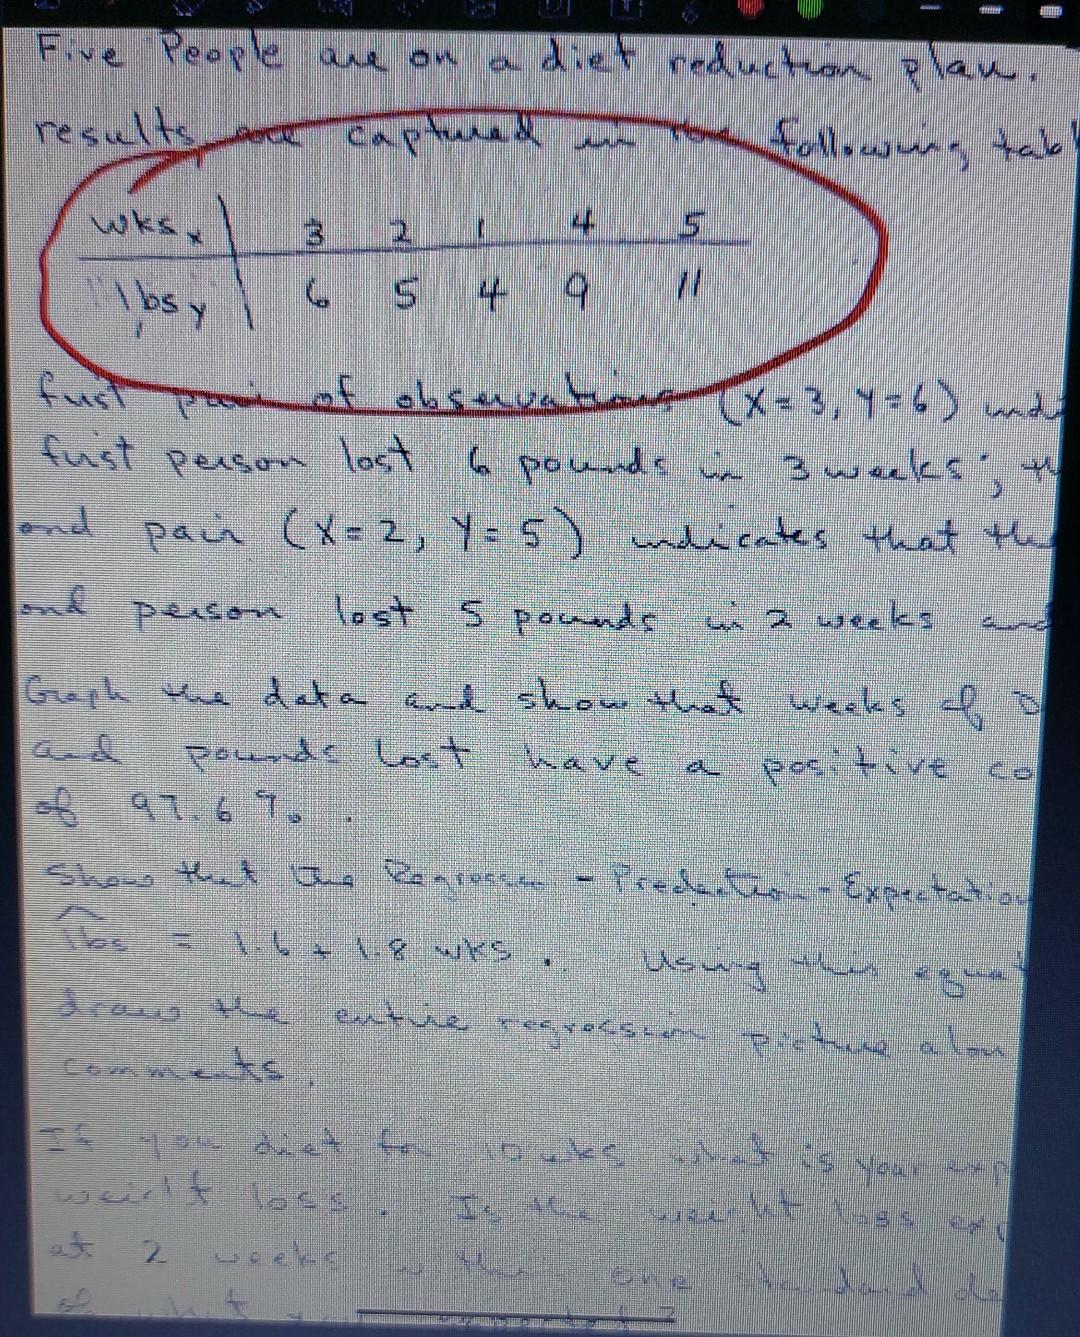 Five People are on a diet reduction plan.
results are captured in the following tabl
wks x | 3 2 1 4 5
lbs y | 6 5 4 9 11
first pair of observations (X=3, Y=6) indi
first person lost 6 pounds in 3 weeks; th
ond pair (X=2, Y=5) indicates that the
ond person lost 5 pounds in 2 weeks and
Graph the data and show that weeks of
and pounds lost have a positive co
of 97.6%.
Show that the Regression - Prediction - Expectation
lbs = 1.6 + 1.8 wks. Using this equat
draw the entire regression picture alon
comments.
If you diet for 10 wks what is your exp
weight loss. Is the weight loss exp
at 2 weeks within one standard de
of what